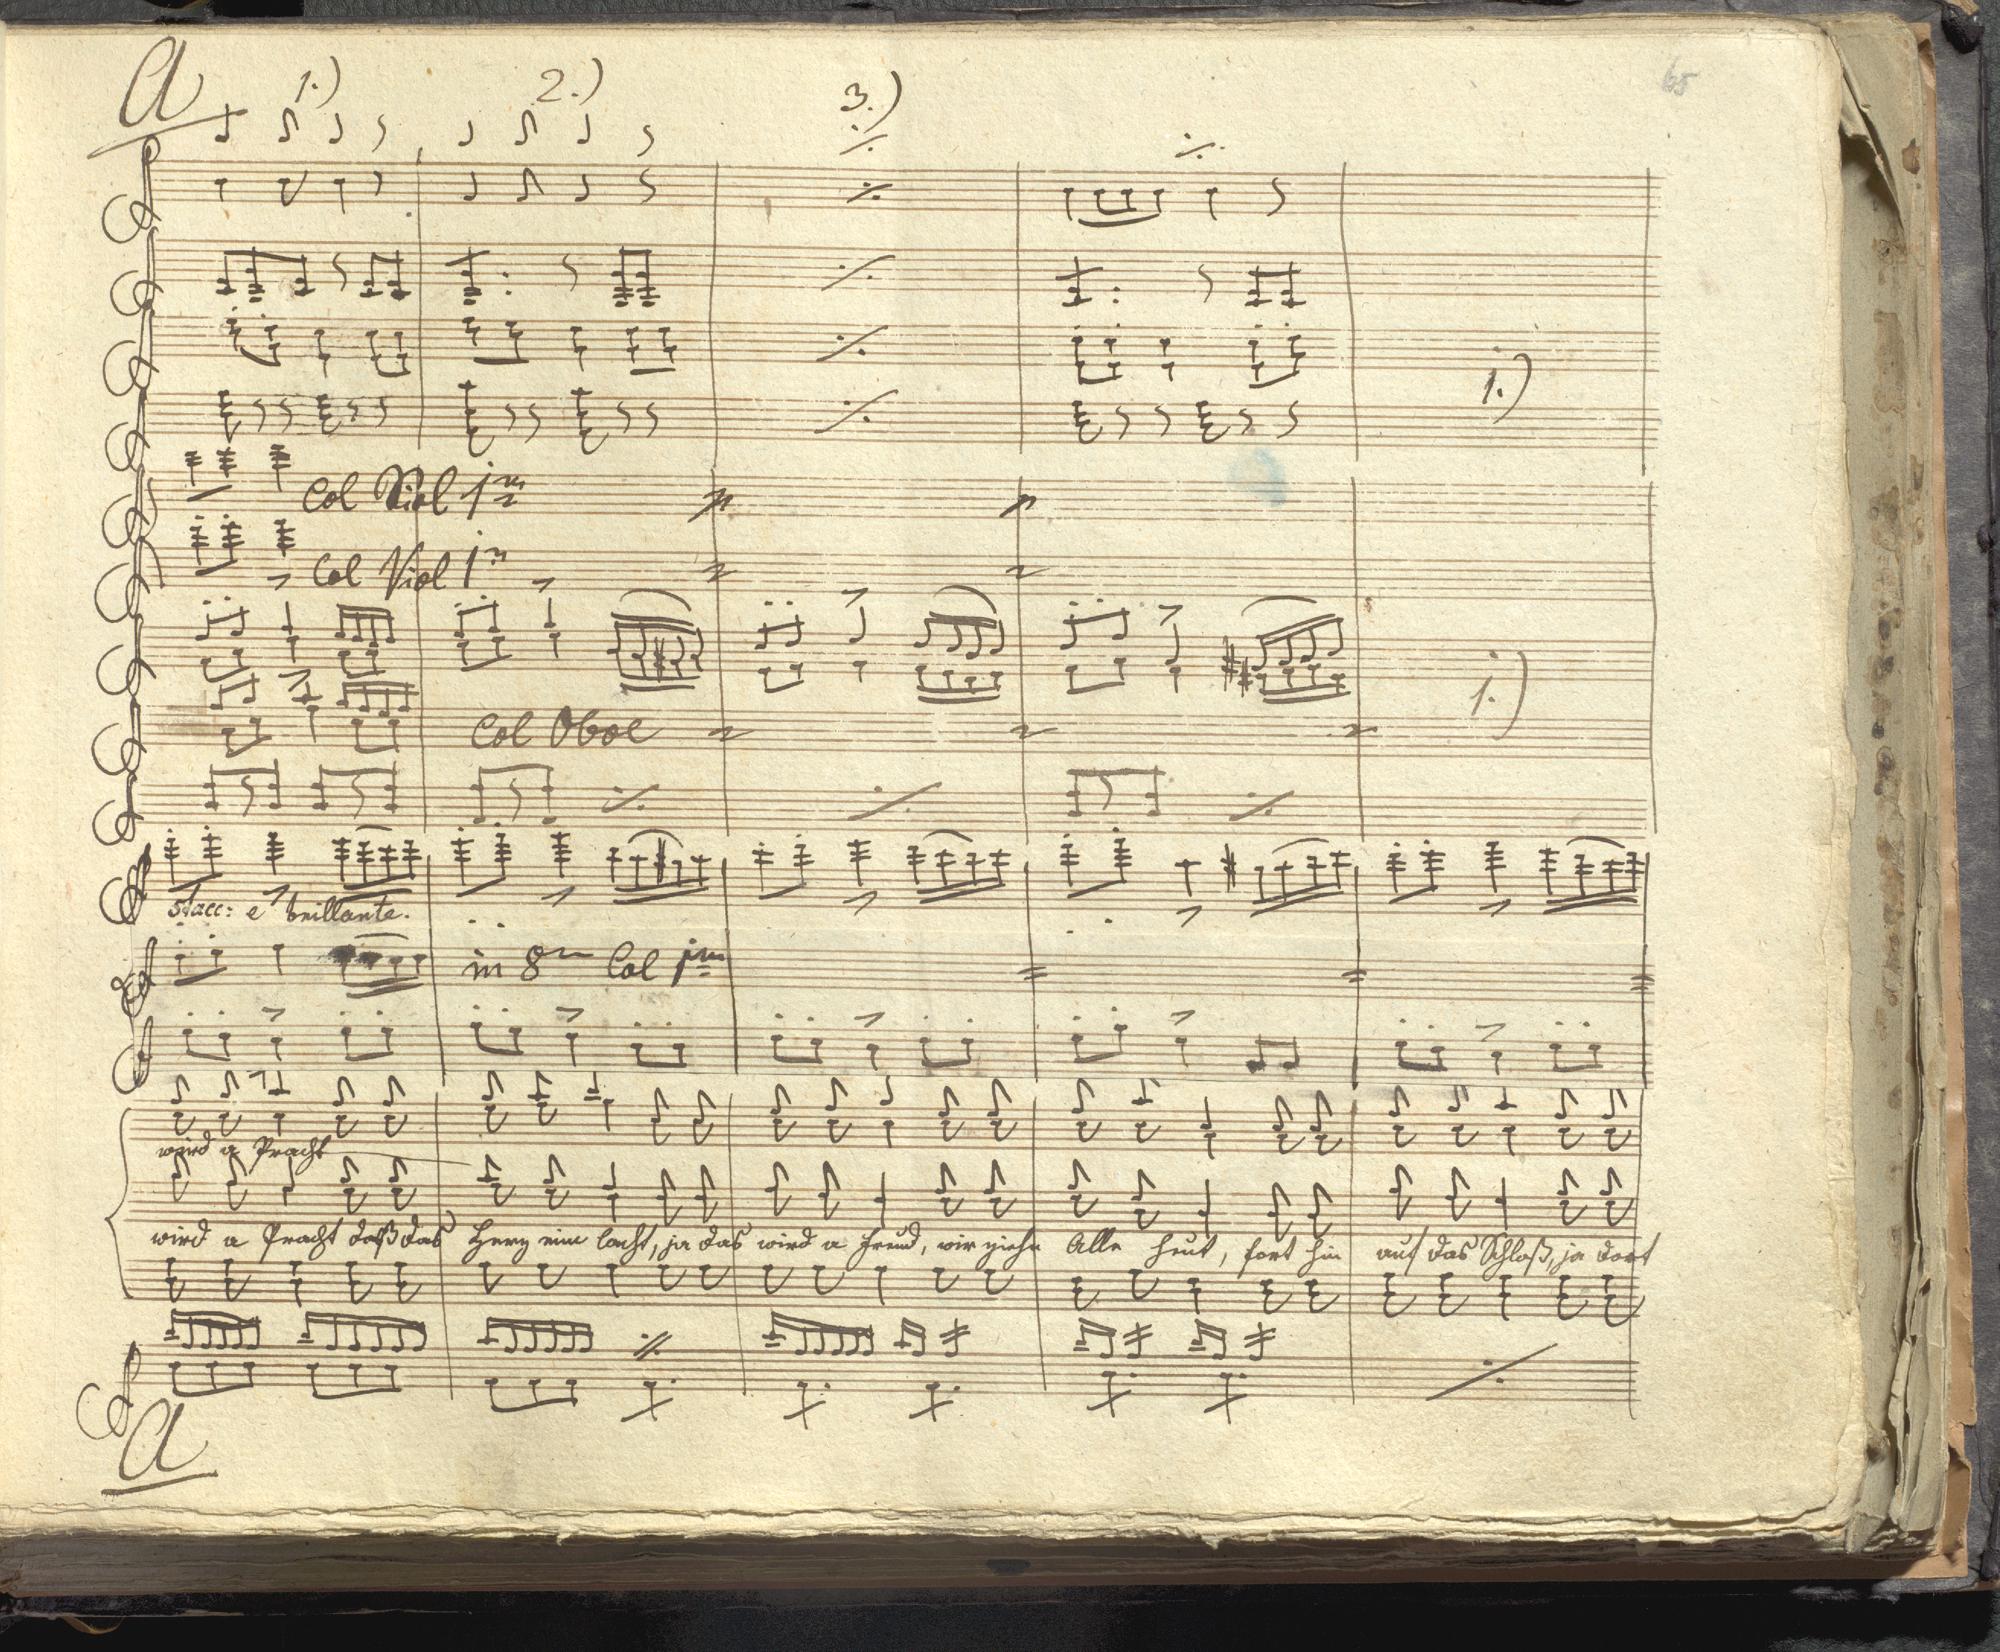 65
A 1.) 2.) 3.)
1.)
Col Viol 1m
Col Viol 1m
1.)
Col Oboe
stacc: e brillante.
in 8va Col 1m
wird a Pracht
wird a Pracht daß das Herz eim lacht, ja das wird a Freud, wir ziehn Alle heut, fort hin auf das Schloß, ja dort
A